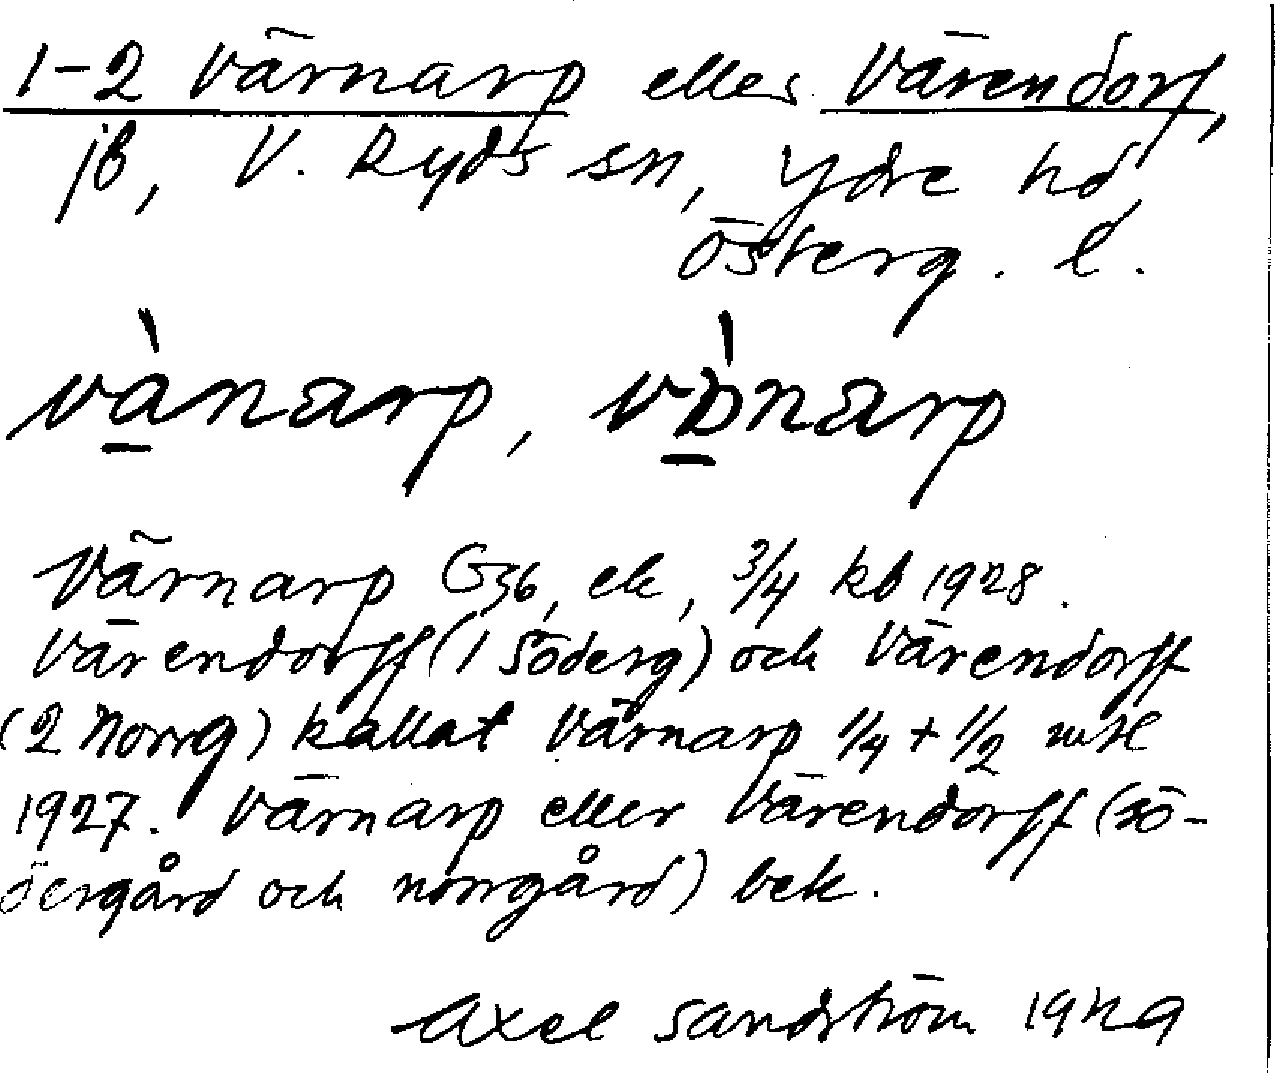 1-2 Värnarp eller Värendorf,
jb, V. Ryds sn, Ydre hd,
Österg. l.
vànarp, vònarp
Värnarp G36, ek, 3/4 kb 1928.
Värendorff (1 Söderg) och Värendorff
(2 Norrg) kallat Värnarp 1/4 + 1/2 mtl
1927. Värnarp eller Värendorff (sö-
dergård och norrgård) bek.
Axel Sandström 1929